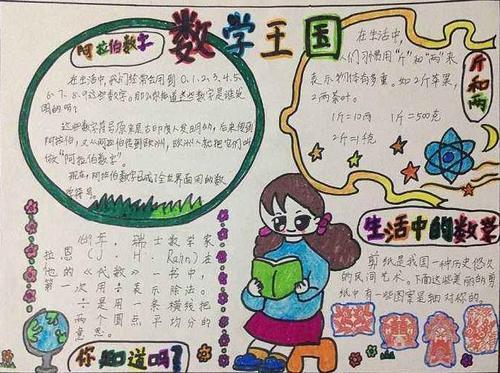 数学王国
阿拉伯数字
在生活中,我们经常会用到0、1、2、3、4、5、
6、7、8、9这些数字。那么你知道这些数字是谁发
明的吗?
这些数字符号原来是古印度人发明的,后来传到
阿拉伯,又从阿拉伯传到欧洲,欧洲人就把它们叫
做“阿拉伯数字”。
现在,阿拉伯数字已成了全世界通用的数
字符号。
斤和两
在生活中,
人们习惯用“斤”和“两”来
表示物体有多重。如2斤苹果,
2两茶叶。
1斤=10两 1斤=500克
2斤=1千克
年,瑞士数学家
拉恩(J.H.Rahn)在
他的《代数》一书中,
第一次用÷表示除法。
÷是用一条横线把
两个圆点平均分的
意思。
你知道吗?
生活中的数学
剪纸是我国一种历史悠久
的民间艺术。下面这些美丽的剪
纸中有一些图案是轴对称的。